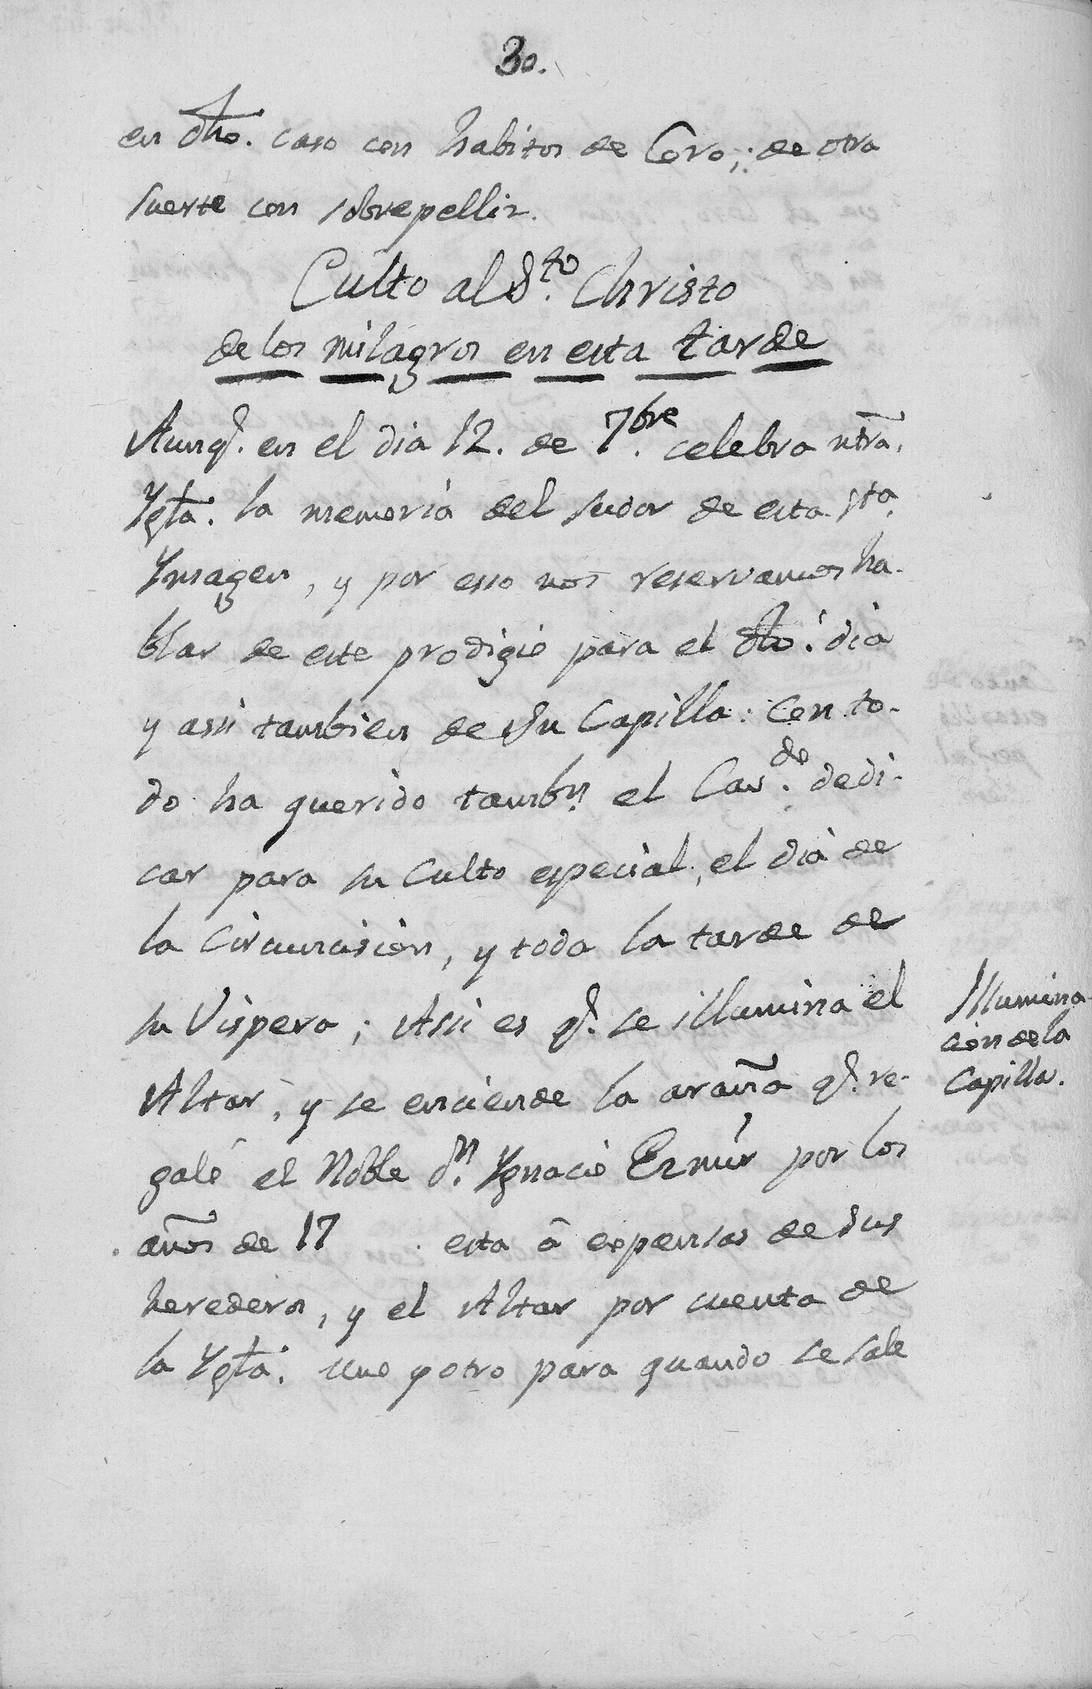 30.
en dho. caso con habitos de Coro; de otra
suerte con sobrepelliz.
Culto al S.to Christo
de los milagros en esta tarde
Aunq.e en el dia 12. de 7.bre celebra ntra.
Yglâ. la memoria del sudor de esta s.ta
Ymagen, y por esso nos reservamos ha-
blar de este prodigio para el dho. dia
y assi tambien de su Capilla: con to-
do ha querido tamb.n el Cav.do dedi-
car para su Culto especial, el dia de
la Circuncision, y toda la tarde de
su Vispera; Assi es q.e se illumina el
Altar, y se enciende la araña q.e re-
galó el Noble d.n Ygnacio por los
años de 17 esta â expensas de sus
herederos, y el Altar por cuenta de
la Yglâ. uno y otro para quando se sale
Illumina-
cion de la
Capilla.